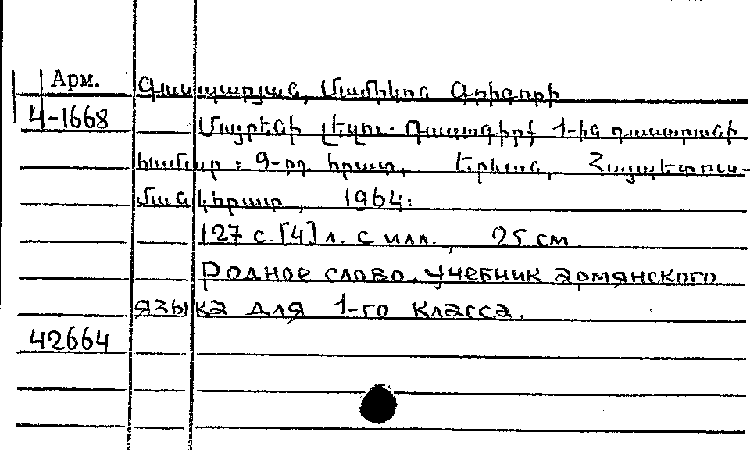 Арм.
Գասպարյան, Մամիկոն Գրիգորի
4-1668
Մայրենի լեզու. Դասագիրք 1-ին դասարանի
համար: 9-րդ հրատ. Երևան, Հայպետուս-
մանկհրատ, 1964:
127 с. [4] л. с илл., 25 см
Родное слово. Учебник армянского
языка для 1-го класса.
42664